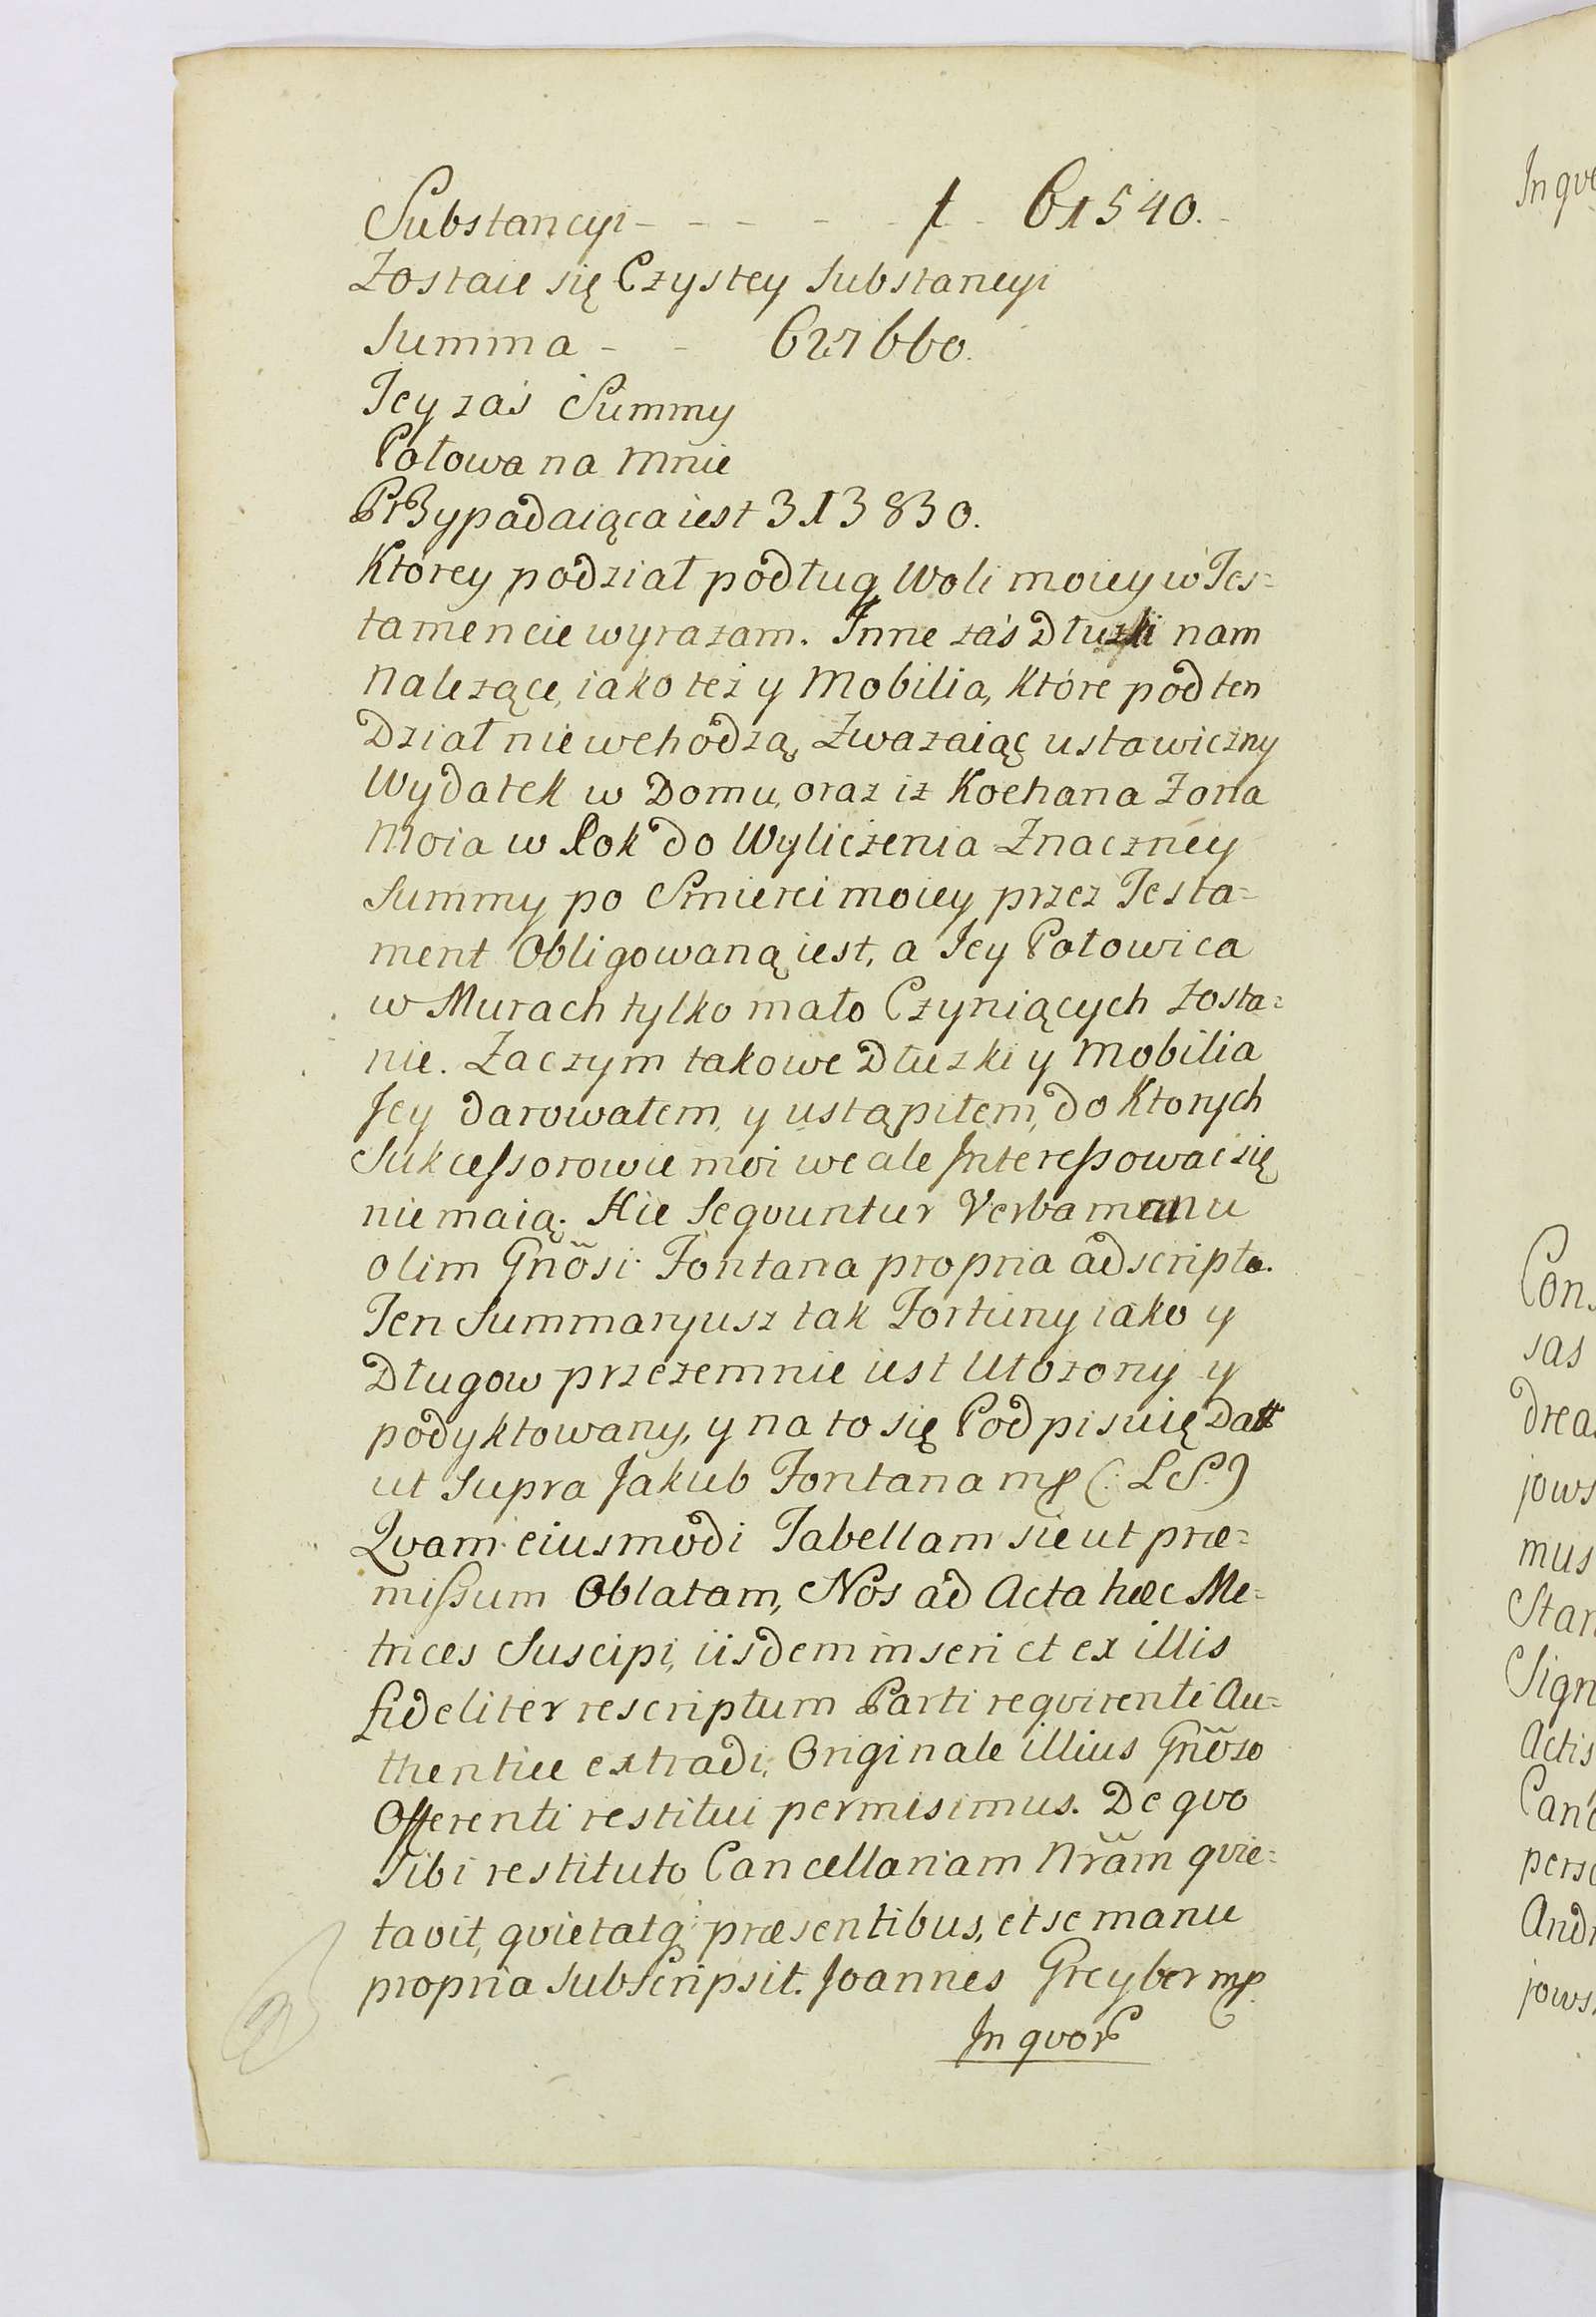 Substancyi - - - - - f - 61540. -
Zostaie się Czystey Substancyi
Summa - - 627660.
Jey zaś Summy
Połowa na mnie
Przypadaiąca iest 313830.
Ktorey podział podług Woli moiey w Tes=
tamencie wyrazam. Inne zaś Dłużki nam
Nalezące, iako też y Mobilia, które pod ten
Dział nie wchodzą, Zwazaiąc ustawiczny
Wydatek w Domu, oraz iz Kochana Zona
Moia w Rok do Wyliczenia Znaczney
Summy po Smierci moiey przez Testa=
ment Obligowaną iest, a Jey Połowica
w Murach tylko mało Czyniących Zosta=
nie. Zaczym takowe Dłuzki y Mobilia
Jey darowałem, y ustąpiłem, do Ktorych
Sukcessorowie moi wcale Interessować się
nie maią. Hic Seqvuntur Verba manu
olim Gnõsi Fontana propria adscripta.
Ten Summaryusz tak Fortuny iako y
Długow przezemnie iest Ułozony y
podyktowany, y na to się Podpisuię Datt
ut Supra Jakub Fontana mp (: LS:)
Qvam eiusmodi Tabellam sicut præ=
missum Oblatam, Nos ad Acta hæc Me=
trices Suscipi, iisdem inseri et ex illis
fideliter rescriptum Parti reqvirenti Au=
thentice extradi, Originale illius Gnõso
Offerenti restitui permisimus. De qvo
Sibi restituto Cancellariam Nrãm qvie=
tavit, qvietatq: præsentibus, et se manu
propria Subscripsit. Joannes Greyber mp.
In qvor
In qve
Con
sas
drea
jows
mus
Stan
Sign
Actis
Canc
pers
Andr
jows